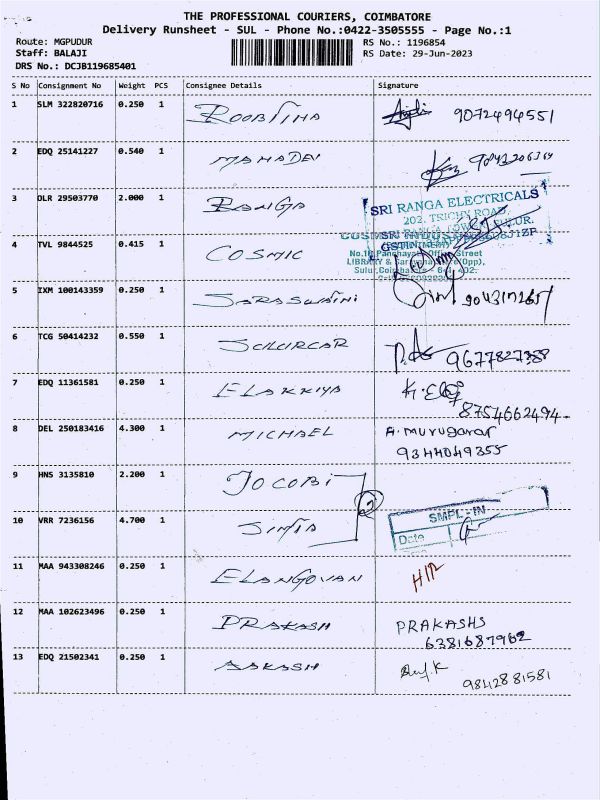 THE PROFESSIONAL COURIERS, COIMBATORE
Delivery Runsheet - SUL - Phone No.:0422-3505555 - Page No.:1
Route: MGPUDUR RS No.: 1196854
Staff: BALAJI RS Date: 29-Jun-2023
DRS No.: DCJB119685401
S No Consignment No Weight PCS Consignee Details Signature
1 SLM 322820716 0.250 1 9072494551
2 EDQ 25141227 0.540 1 MAHADEV
3 DLR 29503770 2.000 1 RANGA SRI RANGA ELECTRICALS
202, TRICHY ROAD,
4 TVL 9844525 0.415 1 COSMIC
5 IXM 100143359 0.250 1
6 TCG 50414232 0.550 1 9677827388
7 EDQ 11361581 0.250 1 ELAKKIYA
8754662494
8 DEL 250183416 4.300 1 MICHAEL A. Murugavar
9344049355
9 HNS 3135810 2.200 1 JOCOBI
10 VRR 7236156 4.700 1 SMPL - IN
Date
11 MAA 943308246 0.250 1 ELANGOVAN
12 MAA 102623496 0.250 1 PRAKASH PRAKASHS
6381687982
13 EDQ 21502341 0.250 1 AAKASH 9842881581